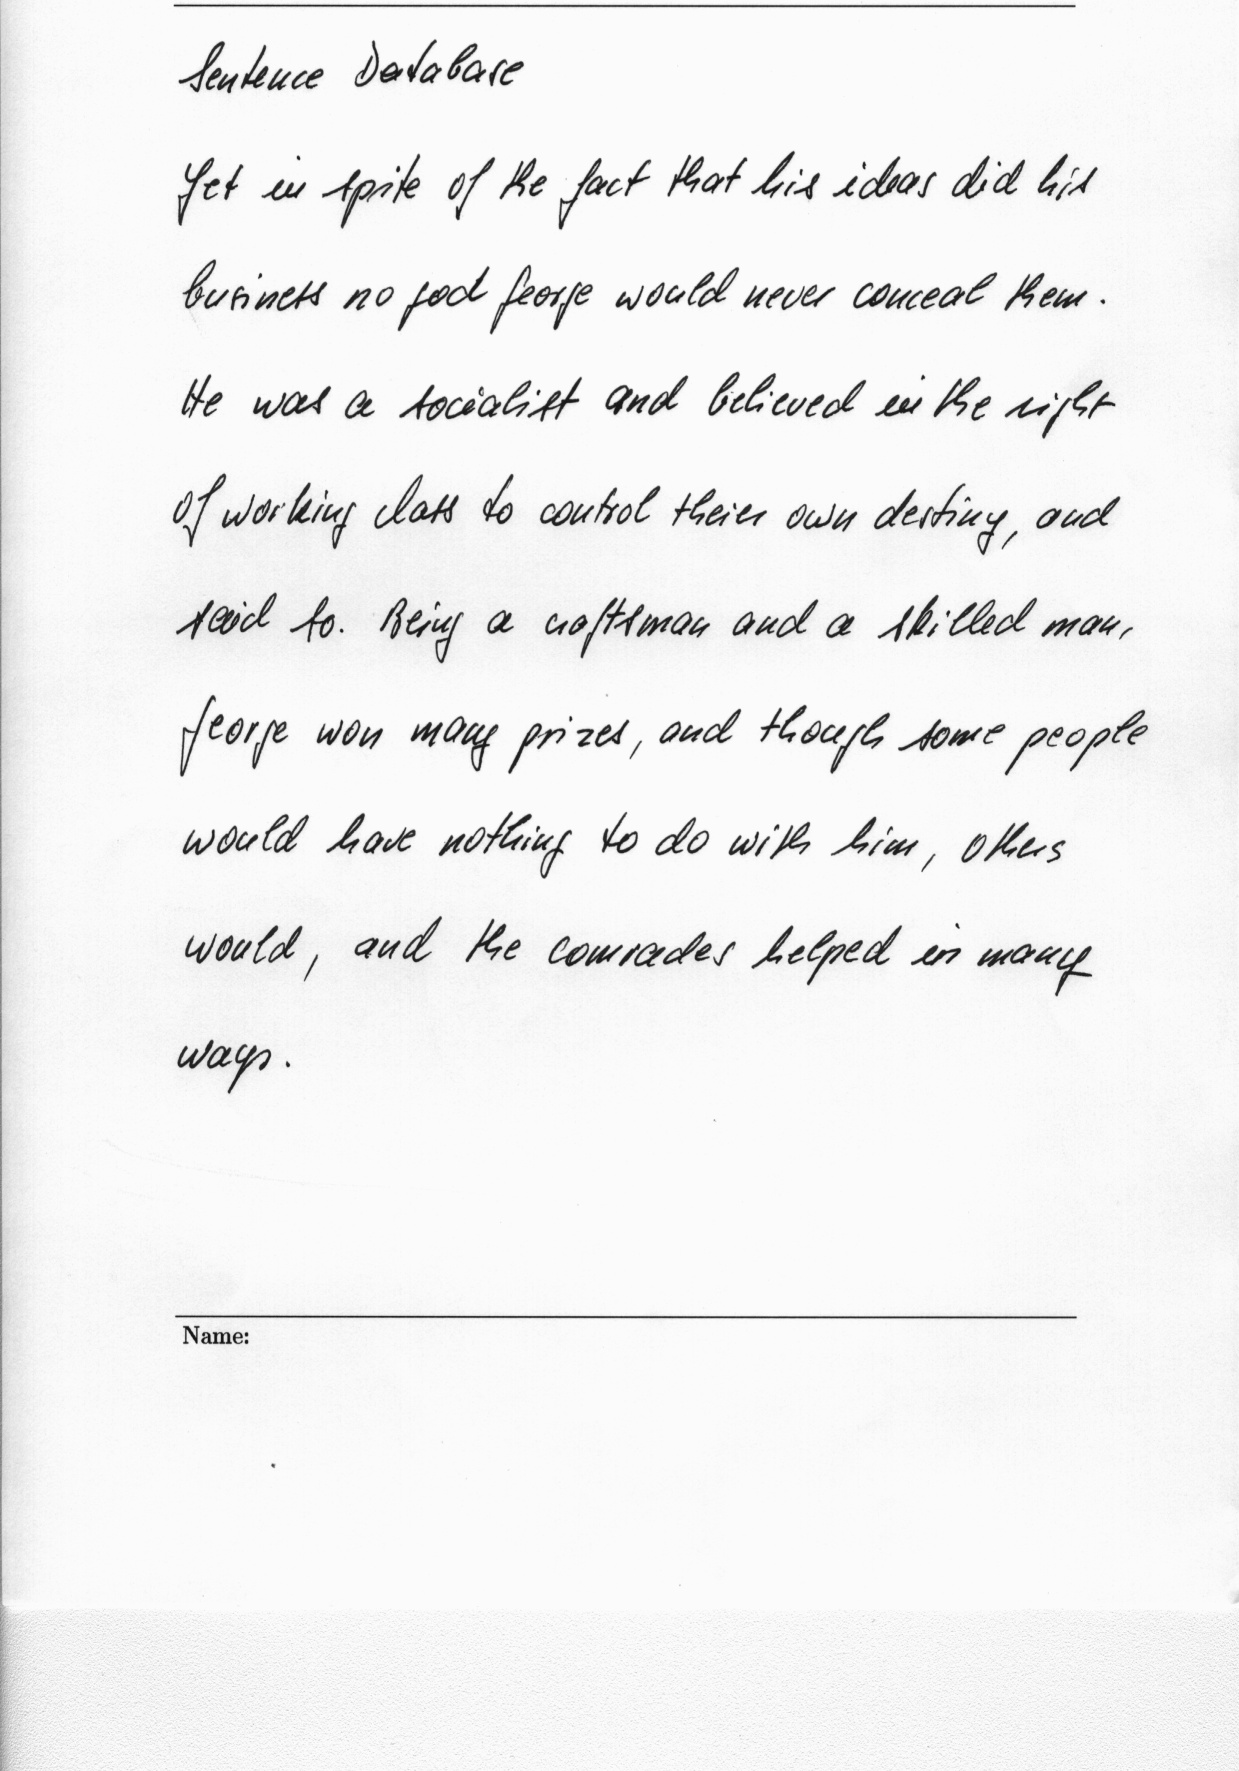 Sentence Database
Yet in spite of the fact that his ideas did his
business no god George would never conceal them.
He was a socialist and believed in the right
of working class to control their own destiny, and
said so. Being a craftsman and a skilled man,
George won many prizes, and though some people
would have nothing to do with him, others
would, and the comrades helped in many
ways.
Name: